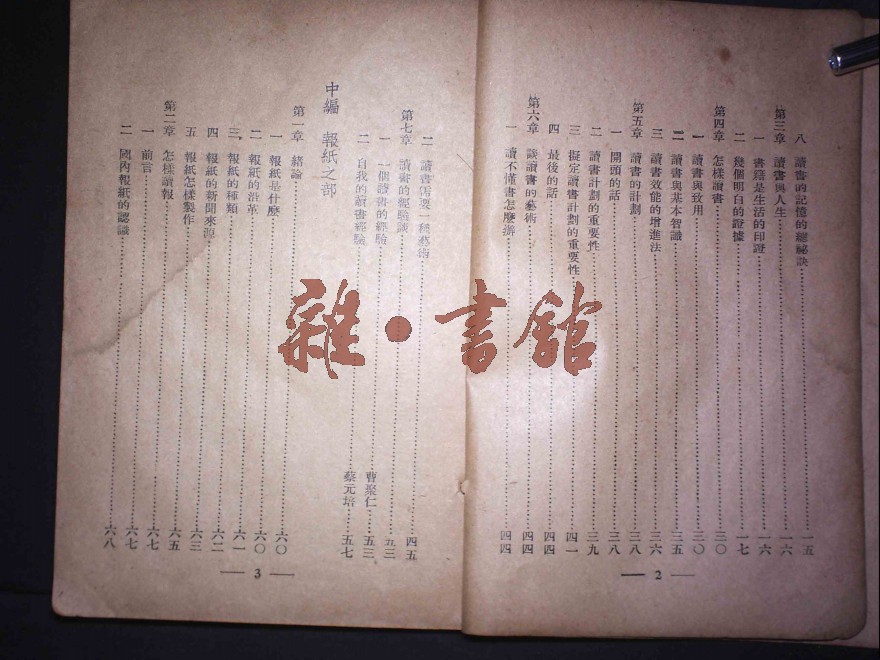 八 讀書的記憶的總秘訣 一五
第三章 讀書與人生 一六
一 書籍是生活的印證 一六
二 幾個明白的證據 一七
第四章 怎樣讀書 三〇
一 讀書與致用 三〇
二 讀書與基本智識 三五
三 讀書效能的增進法 三六
第五章 讀書的計劃 三八
一 開頭的話 三八
二 讀書計劃的重要性 三九
三 擬定讀書計劃的重要性 四一
四 最後的話 四四
第六章 談讀書的藝術 四四
一 讀不懂書怎麼辦 四四
— 2 —
二 讀書需要一種藝術 四五
第七章 讀書的經驗談 五三
一 一個讀書的經驗 曹聚仁 五三
二 自我的讀書經驗 蔡元培 五七
中編 報紙之部
第一章 緒論 六〇
一 報紙是什麼 六〇
二 報紙的沿革 六〇
三 報紙的種類 六一
四 報紙的新聞來源 六二
五 報紙怎樣製作 六三
第二章 怎樣讀報 六五
一 前言 六七
二 國內報紙的認識 六八
— 3 —
雜·書館